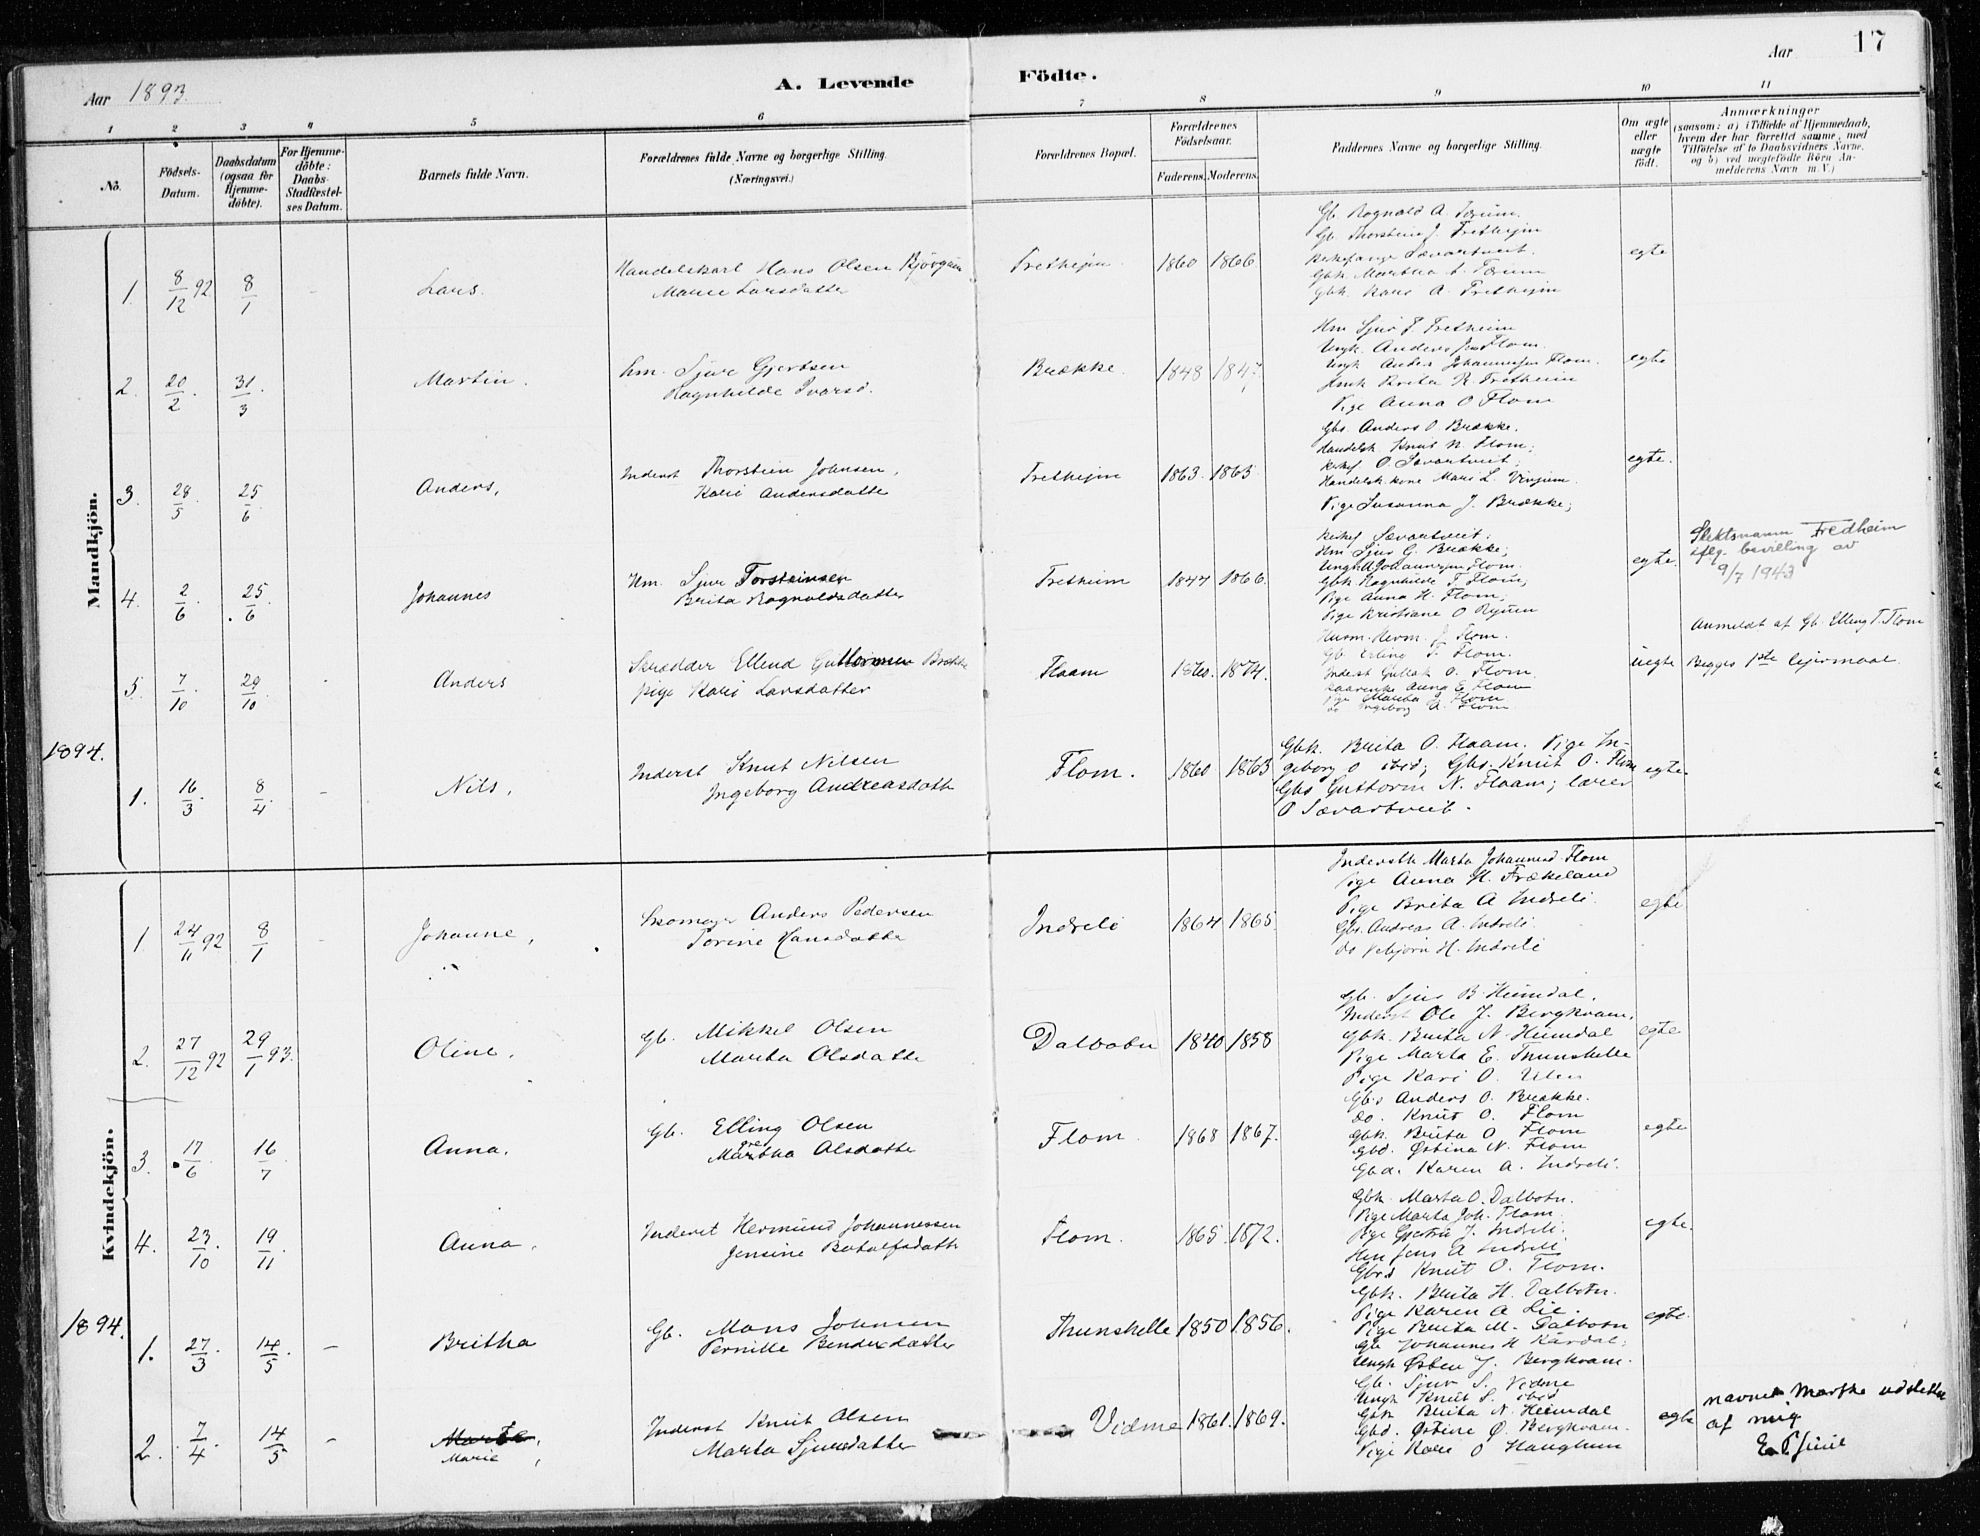 17
Aar 1893.
A. Levende Födte.
Aar
1 2 3 4 5 6 7 8 9 10 11
No.
Födsels-Datum.
Daabsdatum (ogsaa for Hjemme-döbte).
For Hjemme-döbte: Daabs-Stadfæstel-ses Datum.
Barnets fulde Navn.
Forældrenes fulde Navne og borgerlige Stilling. (Næringsvei.)
Forældrenes Bopæl.
Forældrenes Födselsaar.
Faderens. Moderens.
Faddernes Navne og borgerlige Stilling.
Om ægte eller uægte födt.
Anmærkninger
(saasom: a) i Tilfælde af Hjemmedaab,
hvem der har forrettet samme, med
Tilföielse af to Daabsvidners Navne,
og b) ved uægtefödte Börn An-
melderens Navn m. V.)
Mandkjön.
1. 8/12 92 8/1 - Lars.
Handelskarl Hans Olsen
Marie Larsdatter
Trethejm 1860 1866.
Gb. Rognald A.
Gb. Thorstein J. Trethejm
Sævartveit.
Gbk. Martha
Gbk. Kari A. Trethejm
egte
2. 20/2. 31/3. Martin.
hm. Sjur Gjertsen
Ragnhilde Ivarsd.
Brække. 1848 1847.
Hm Sjur T. Tretheim
Ungk. Anders Flom.
Ungk Anders Johannesen Flom.
Brita R. Tretheim
Pige Anna O Flom
egte
3. 28/5 25/6 Anders,
Inderst Thorstein Johnsen,
Kari Andersdatter
Trethejm 1863. 1865.
Gbs. Anders O Brække.
Handelsk Knut N. Flom;
O. Sævartveit,
Handelsk.kone Mari L.
Pige Susanna J. Brække;
egte.
4. 2/6 25/6 Johannes
Hm. Sjur Torsteinsen
Brita Rognaldsdatter
Tretheim 1847 1866.
Sævartveit.
Hm Sjur G. Brække;
Ungk Johannesen Flom.
Gbk. Ragnhilde T. Flom;
Pige Anna H. Flom;
Pige Kristiane O
egte.
Slektsnamn Fredheim
iflg. bevilling av
9/7 1943
5. 7/10 29/10 Anders
Skrædder Ellend Guttormsen Brække
pige Kari Larsdatter
Flaam 1860. 1874.
Husm. Herm. J. Flom.
Gb. Elling T. Flom.
Inderst O. Flom
Anna E. Flom
Pige Martha J. Flom
do Ingeborg A. Flom
uegte
Anmeldt af Gb. Elling T. Flom
Begges 1ste lejermaal.
1894.
1. 16/3. 8/4. - Nils.
Inderst Knut Nilsen
Ingeborg Andreasdatt
Flom. 1860 1863
Gbk. Brita O. Flaam. Pige In-
geborg O ibid; Gbs. Knut O. Flom
Gbs Guttorm N. Flaam; lærer
O Sævartveit.
egte.
Kvindekjön.
1 24/11 92 8/1 - Johanne,
Skomager Anders Pedersen
Torine Hansdatte
Indreli 1864 1865.
Inderstk Marta Johannesd Flom
Pige Anna H. Frækeland
Pige Brita A Indreli.
Gbs. Andreas A. Indreli.
do Vebjørn H. Indreli
egte
2. 27/12 92 29/1 93. Oline.
Gb. Mikkel Olsen
Marta Olsdatte
Dalbotn 1840 1858
Gb. Sjur B Heimdal.
Inderst Ole J. Bergkvam.
Gbk. Brita N. Heimdal
Pige Marta E. Thunshelle
Pige Kari O.
egte
3. 17/6 16/7 Anna.
Gb. Elling Olsen
Martha Olsdatte
Flom. 1868 1867.
Gbs Anders O. Brække.
do. Knut O. Flom
Gbk. Brita O Flom
Gbd. Østina N. Flom
Gbd. Karen A. Indreli.
egte
4. 23/10. 19/11 Anna.
Inderst Hermund Johannessen
Jensine Botolfsdatte
Flom. 1865. 1872.
Gbk. Marta O. Dalbotn.
Pige Marta Joh. Flom.
Pige Gjertru J. Indreli.
Jens A Indreli
Gbsd Knut O. Flom.
egte
1894.
1. 27/3. 14/5. - Britha
Gb. Mons Johnsen
Pernille Bendixdatter
Thunshelle 1850 1856.
Gbk. Brita H. Dalbotn.
Pige Karen A Lie.
Pige Brita M. Dalbotn
Gb Johannes H Kårdal;
Ungk Østen J. Bergkvam.
egte.
2. 7/4 14/5 - Marie,
Inderst Knut Olsen
Marta Sjursdatter
Vidme 1861. 1869.
Gb. Sjur S. Vidme
Ungk Knut S. ibid
Gbk Brita N. Heimdal
Gbd. Østine Ø. Bergkvam.
Pige Kari O Haughun
egte
navnet Marthe udslettet
af mig